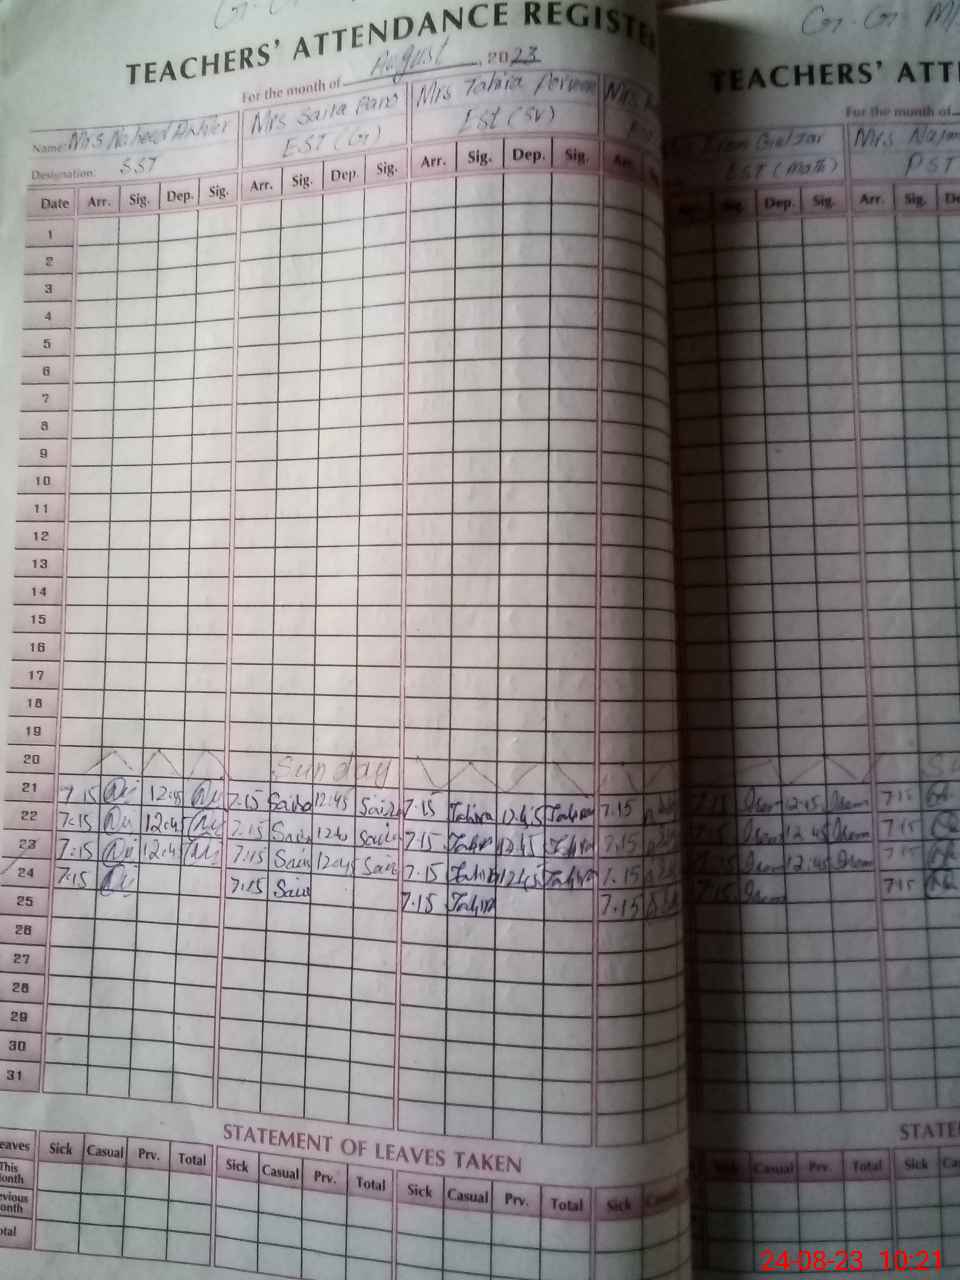 TEACHERS' ATTENDANCE REGISTE
For the month of August 2023
Name: Mrs Naheed Mrs Saira Bano Mrs Tahira Perveen Mrs
Designation: SST EST (G) EST (SV)
Date Arr. Sig. Dep. Sig. Arr. Sig. Dep. Sig. Arr. Sig. Dep. Sig. Arr.
1
2
3
4
5
6
7
8
9
10
11
12
13
14
15
16
17
18
19
20 Sunday
21 7:15 12:45 7:15 Saira 12:45 Saira 7:15 Tahira 12:45 Tahira 7.15
22 7:15 12:45 7:15 Saira Saira 7:15 Tahira 12:45 Tahira 7.15
23 7:15 12:45 7:15 Saira 12:45 Saira 7:15 Tahira 12:45 Tahira 7.15
24 7:15 7:15 Saira 7:15 Tahira 7.15
25
26
27
28
29
30
31
STATEMENT OF LEAVES TAKEN
eaves Sick Casual Prv. Total Sick Casual Prv. Total Sick Casual Prv. Total Sick
This
onth
evious
onth
otal
G. G. M
TEACHERS' ATT
For the month of
Mrs
SST (Math) PST
Sig. Dep. Sig. Arr. Sig. De
7:15 12:45 7:15
7:15 12:45 7:15
7:15 12:45 7:15
7:15 7:15
STATE
Sick Casual Prv. Total Sick Ca
24-08-23 10:21